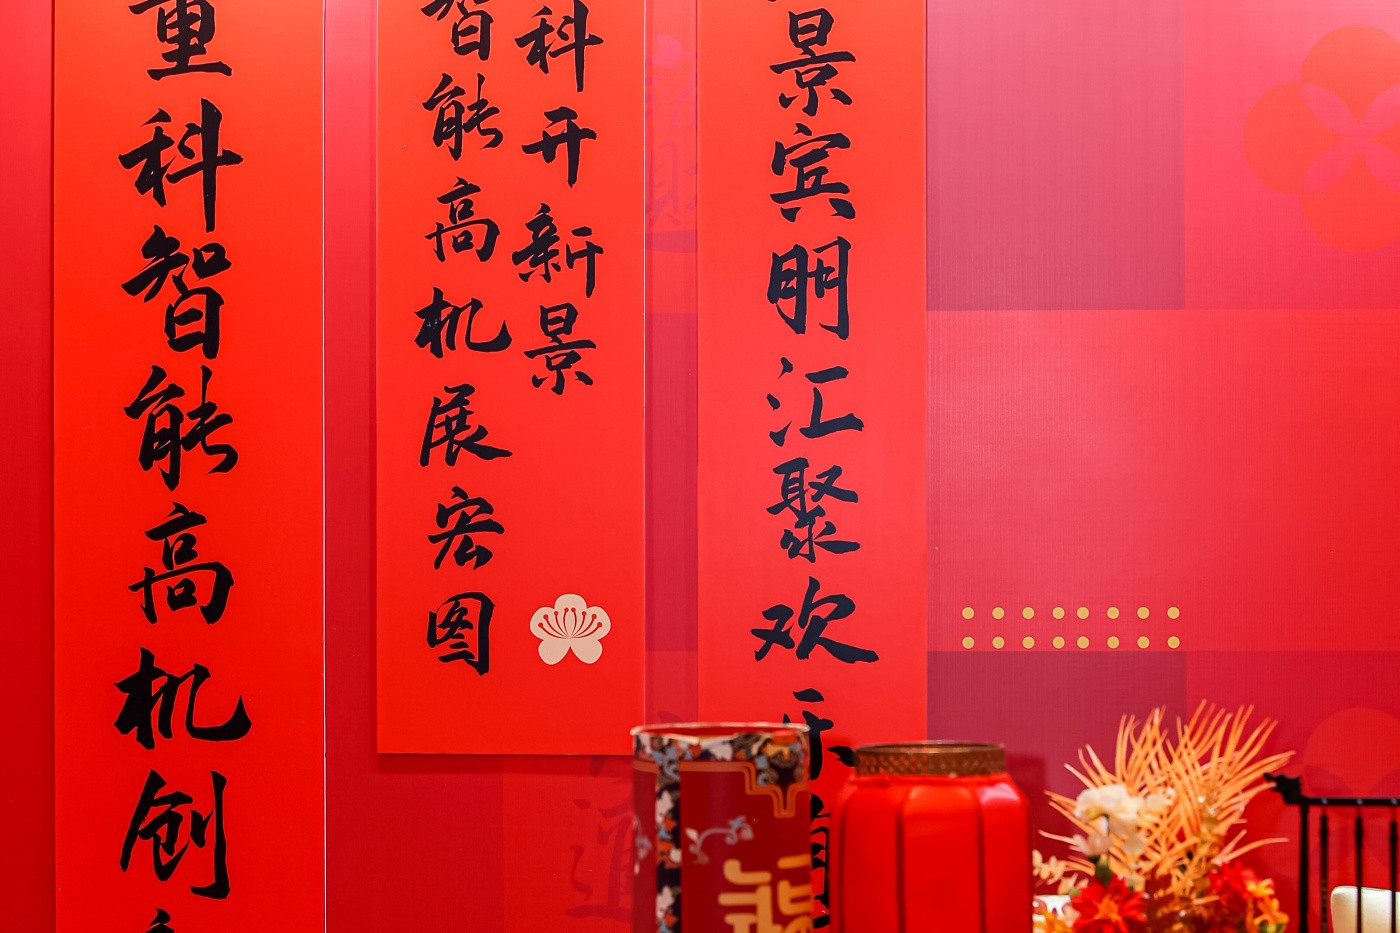 重科智能高机创
科开新景
智能高机展宏图
景宾朋汇聚欢乐